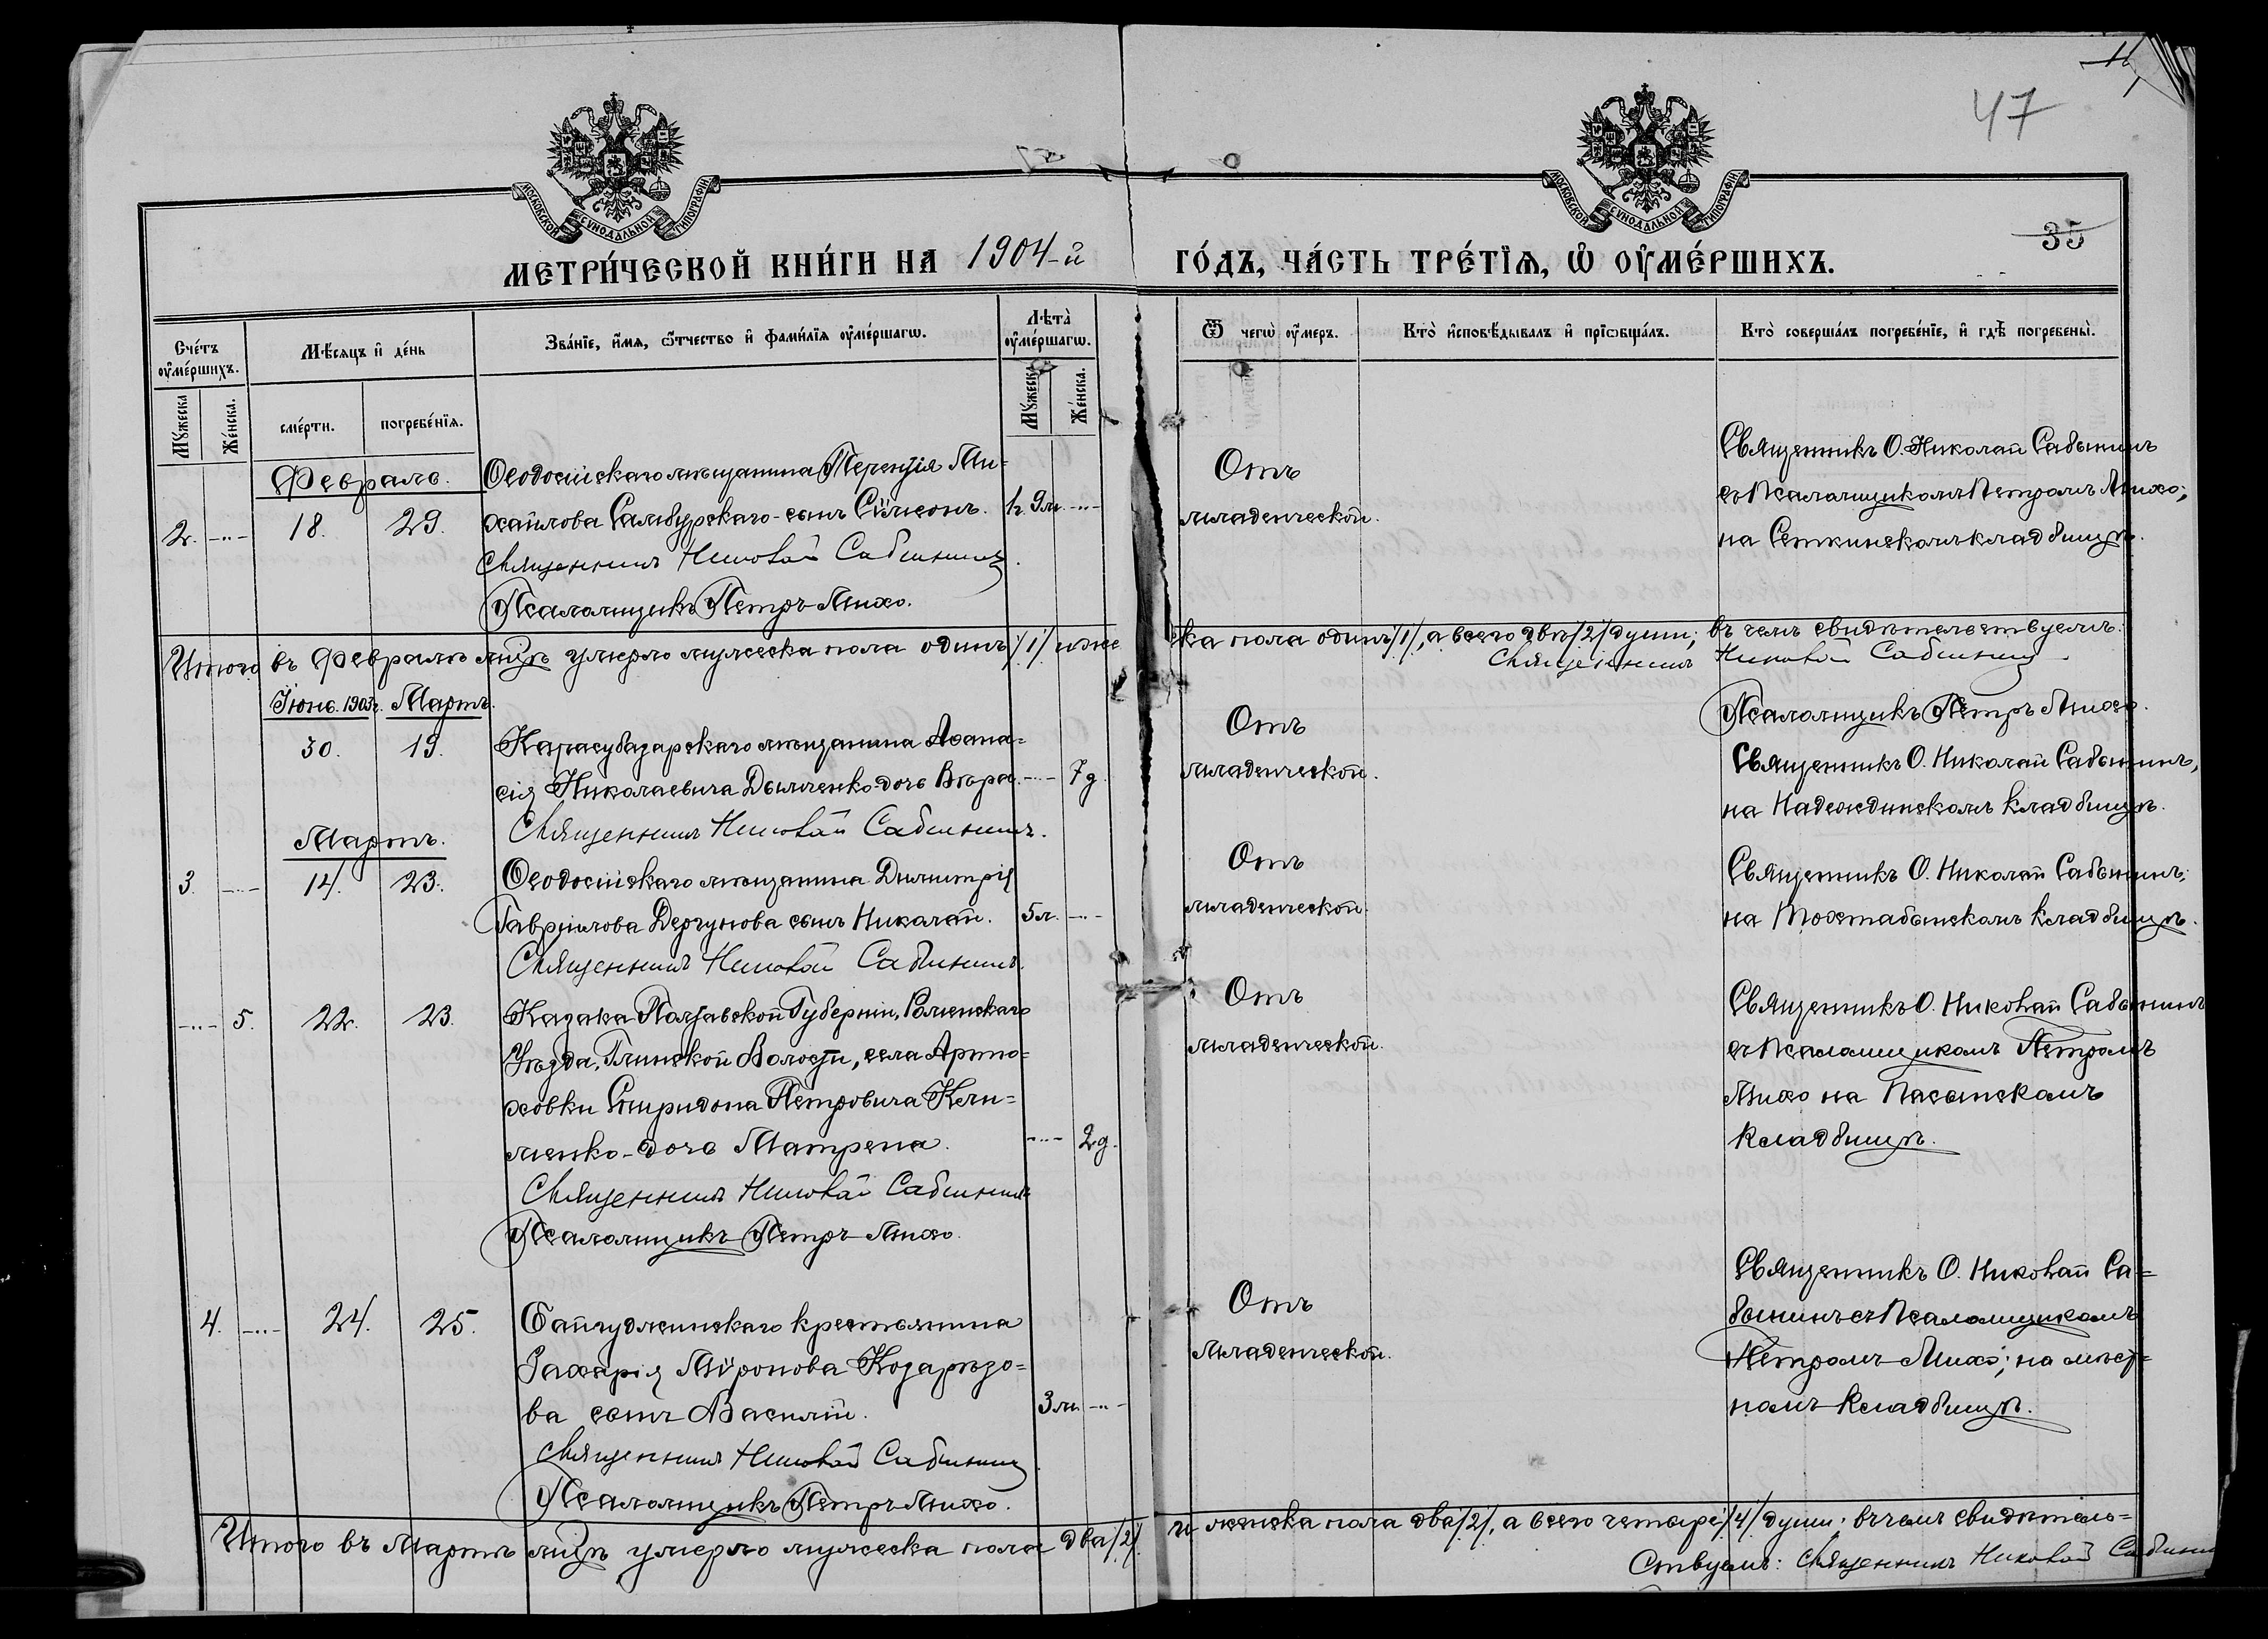 11
47
МОСКОВСКОЙ СУНОДАЛЬНОЙ ТИПОГРАФІИ
МОСКОВСКОЙ СУНОДАЛЬНОЙ ТИПОГРАФІИ
35
МЕТРИ́ЧЕСКОЙ КНИ́ГИ НА 1904-й ГО́ДЪ, ЧА́СТЬ ТРЕ́ТІѦ, Ѡ ОУМЕ́РШИХЪ.
Сче́тъ оуме́ршихъ.
Мѣ́сяцъ и де́нь
Зва́нїе, и́мя, ѻ́тчество и фами́лїя оуме́ршагѡ.
Лѣта̀ оуме́ршагѡ.
Ѿ чегѡ̀ оу́меръ.
Кто̀ и҆сповѣ́дывалъ и прїѡбща́лъ.
Кто̀ соверша́лъ погребе́нїе, и гдѣ̀ погребены̀.
Му́жеска
Же́нска.
сме́рти.
погребе́нїя.
Му́жеска
Же́нска.
Февраль.
2. -..- 18. 29.
Ѳеодосійскаго мѣщанина Терентія Ми=
хайлова Самбурскаго-сынъ Сѵмеонъ. 1г. 9м. -..-
Священникъ Николай Сабининъ.
Псаломщикъ Петръ Михо.
Отъ
младенческой.
Священникъ О. Николай Сабынинъ
съ Псаломщикомъ Петромъ Михо;
на Сеткинскомъ кладбищѣ.
Итого въ Февралѣ мцѣ умерло мужеска пола одинъ /1/ и женска пола одинъ /1/, а всего двѣ /2/ души; въ чемъ свидѣтельствуемъ:
Священникъ Николай Сабининъ
Псаломщикъ Петръ Михо.
Іюнь. 1903г. Мартъ.
30. 19.
Карасубазарскаго мѣщанина Аѳана=
сія Николаевича Дымченко-дочь Вѣра. -..- 7д.
Священникъ Николай Сабининъ.
Отъ
младенческой.
Священникъ О. Николай Сабынинъ,
на Надеждинскомъ кладбищѣ.
Мартъ.
3. -..- 14. 23.
Ѳеодосійскаго мѣщанина Димитрія
Гавріилова Дергунова сынъ Николай. 5л. -..-
Священникъ Николай Сабининъ.
Отъ
младенческой.
Священникъ О. Николай Сабынинъ;
на Тохтабынскомъ кладбищѣ.
-..- 5. 22. 23.
Казака Полтавской Губерніи, Роменскаго
Уѣзда, Глинской Волости, села Артю=
ховки Спиридона Петровича Кли=
менко-дочь Матрена. -..- 2д.
Священникъ Николай Сабининъ
Псаломщикъ Петръ Михо.
Отъ
младенческой.
Священникъ О. Николай Сабынинъ
съ Псаломщикомъ Петромъ
Михо на Пасынскомъ
кладбищѣ.
4. -..- 24. 25.
Байгуджинскаго крестьянина
Захарія Мѵронова
ва сынъ Василій. 3м. -..-
Священникъ Николай Сабининъ.
Псаломщикъ Петръ Михо.
Отъ
младенческой.
Священникъ О. Николай Са=
бынинъ съ Псаломщикомъ
Петромъ Михо; на мѣст=
номъ кладбищѣ.
Итого въ Мартѣ мцѣ умерло мужеска пола два /2/ и женска пола два /2/, а всего четыре /4/ души; въ чемъ свидѣтель=
ствуемъ: Священникъ Николай Сабинин